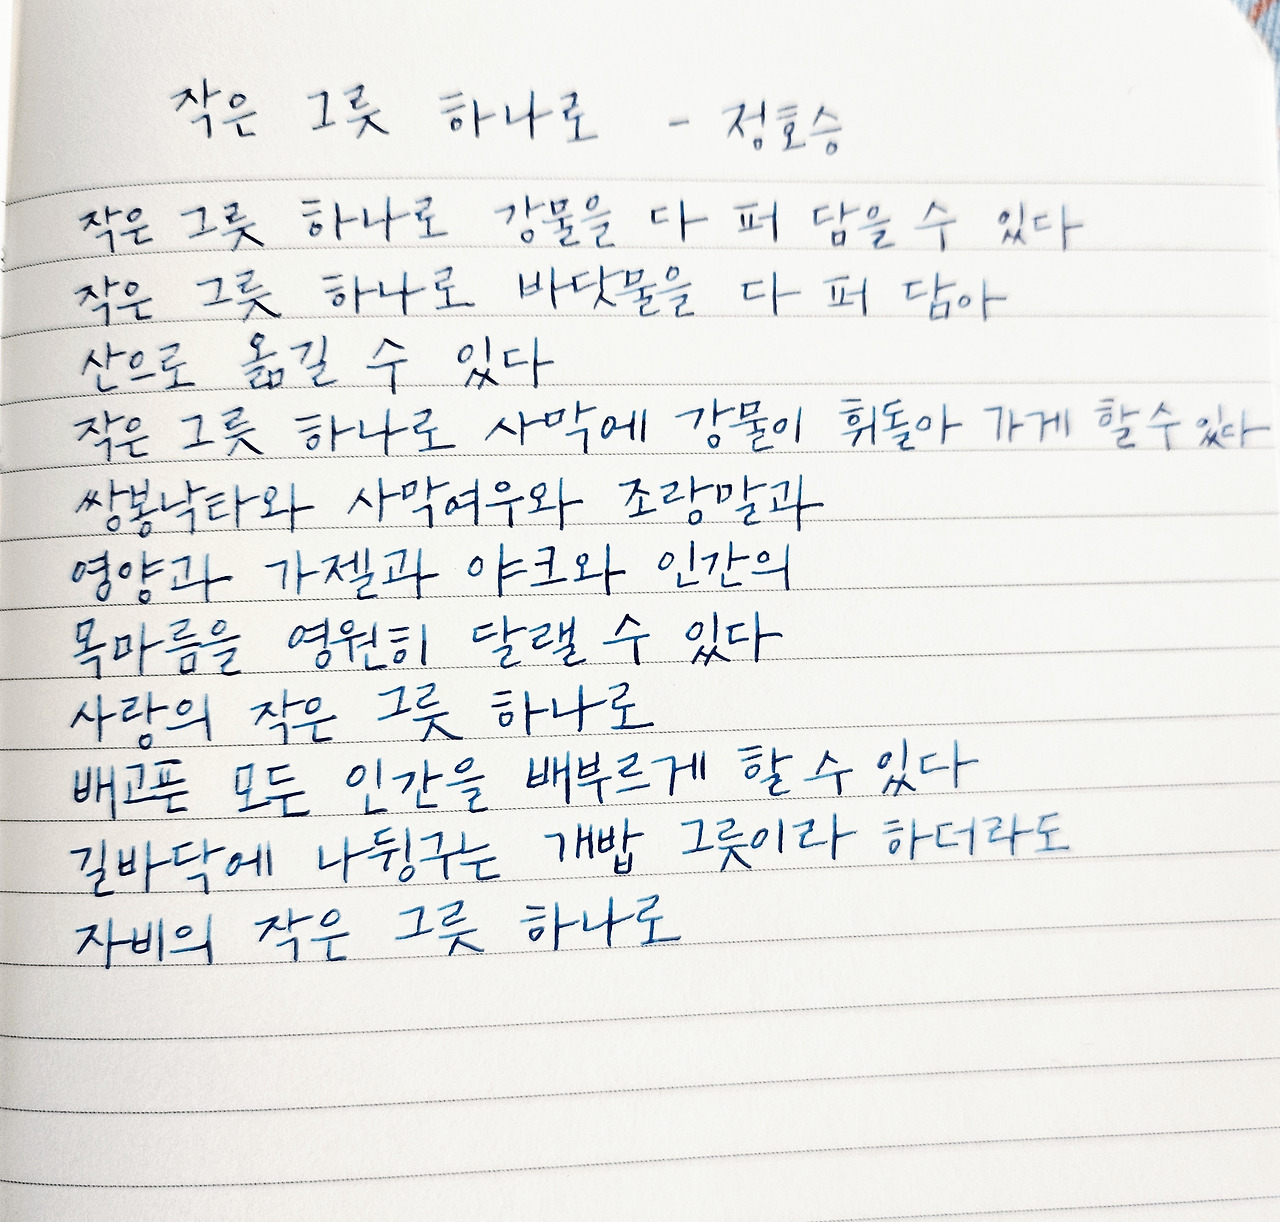 작은 그릇 하나로 - 정호승
작은 그릇 하나로 강물을 다 퍼 담을 수 있다
작은 그릇 하나로 바닷물을 다 퍼 담아
산으로 옮길 수 있다
작은 그릇 하나로 사막에 강물이 휘돌아 가게 할 수 있다
쌍봉낙타와 사막여우와 조랑말과
영양과 가젤과 야크와 인간의
목마름을 영원히 달랠 수 있다
사랑의 작은 그릇 하나로
배고픈 모든 인간을 배부르게 할 수 있다
길바닥에 나뒹구는 개밥 그릇이라 하더라도
자비의 작은 그릇 하나로